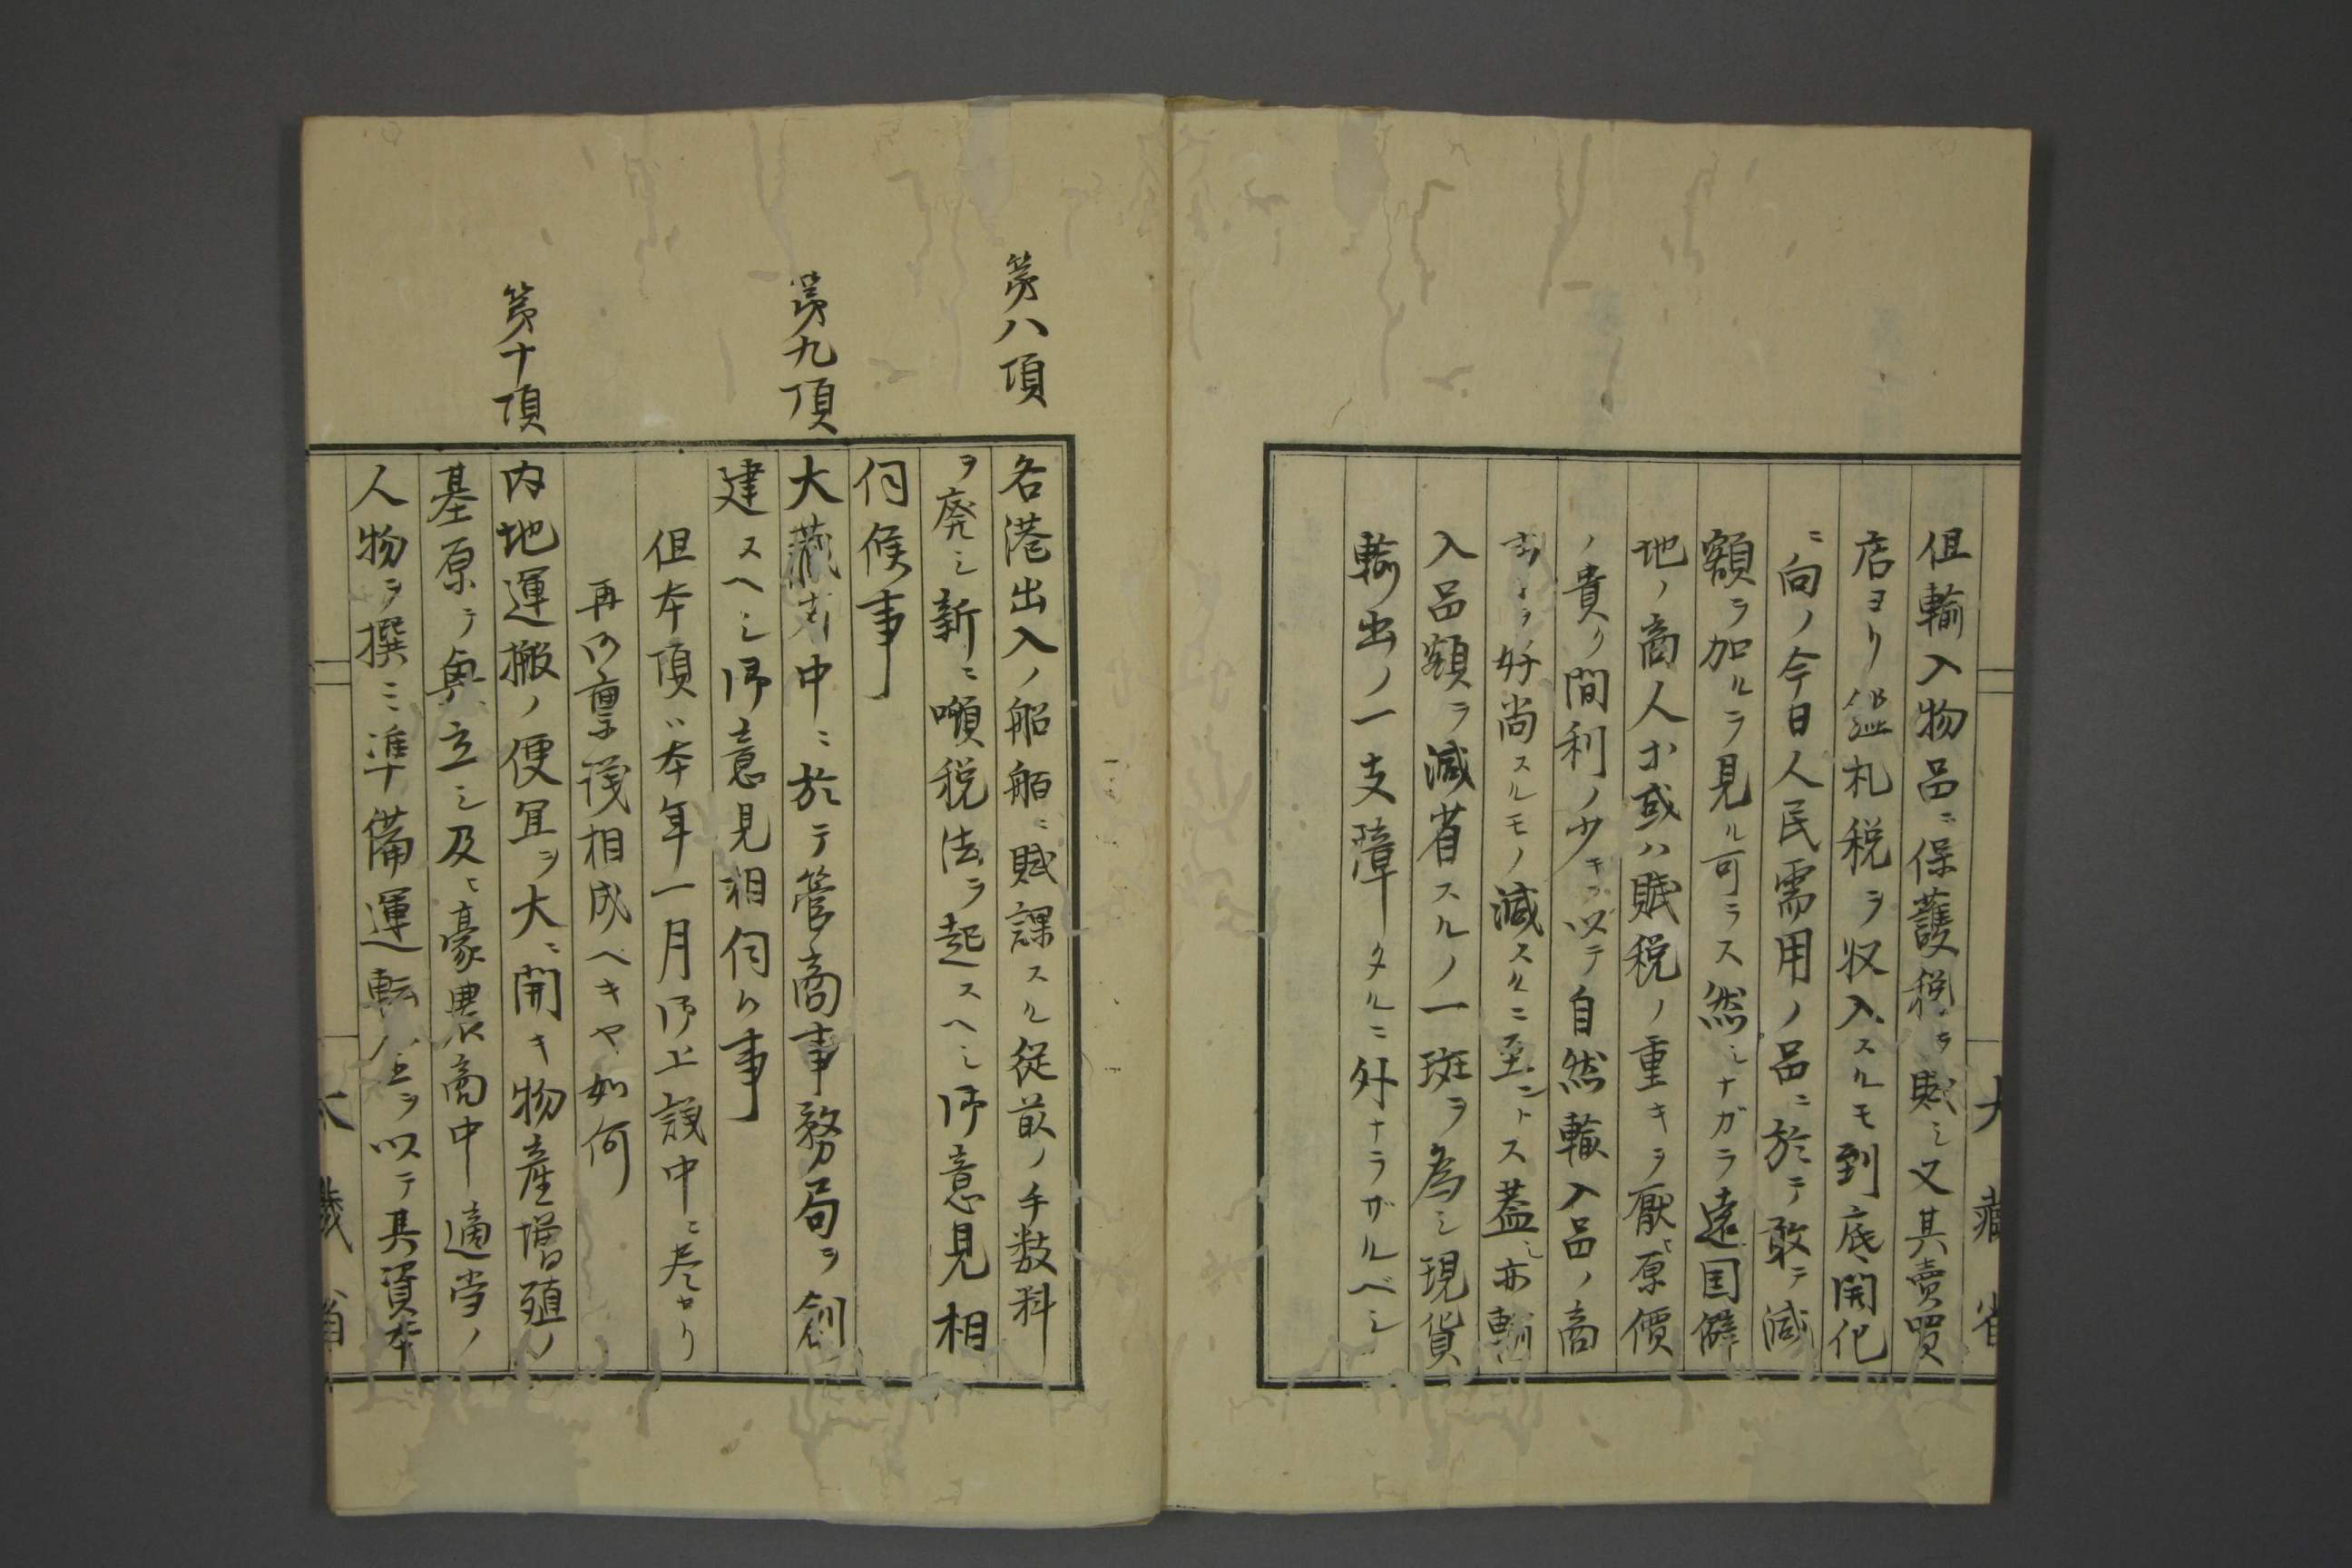 大藏省
但輸入物品ニ保護税ヲ賦シ又其賣買
店ヨリ鑑札税ヲ収入スルモ到底開化
ニ向ノ今日人民需用ノ品ニ於テ敢テ減
額ヲ加ルヲ見ル可ラス然シナガラ遠国僻
地ノ商人ホ或ハ賦税ノ重キヲ厭ヒ原價
ノ貴ク間利ノ少キヲ以テ自然輸入品ノ商
ヲ好尚スルモノ減スルニ至ントス蓋シ亦輸
入品額ヲ減省スルノ一斑ヲ為シ現貨
輸出ノ一支障タルニ外ナラザルベシ
第八項
各港出入ノ船舶ニ賦課スル従前ノ手数料
ヲ廃シ新ニ噸税法ヲ起スヘシ御意見相
伺候事
第九項
大藏省中ニ於テ管商事務局ヲ創
建スヘシ御意見相伺ク事
但本項ハ本年一月御上設中ニ尽セリ
再御禀議相成ヘキヤ如何
第十項
内地運搬ノ便宜ヲ大ニ開キ物産増殖ノ
基原ヲ興立シ及ヒ豪農商中適当ノ
人物ヲ撰ミ準備運転ノ丘ヲ以テ其資本
大藏省